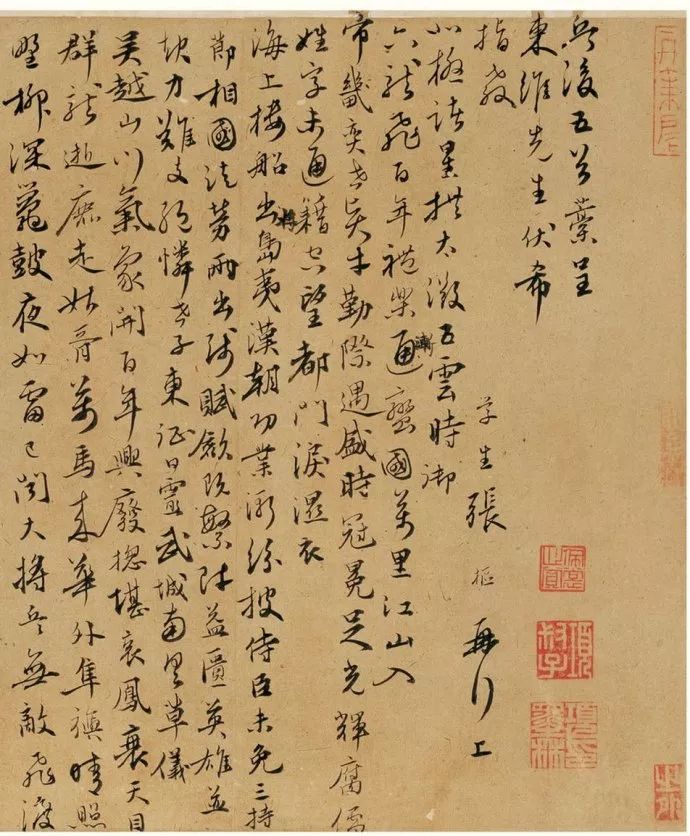 兵後五首藁呈
東維先生伏希
指教
學生張樞再拜上
北極諸星拱太微五雲時御
六龍飛百年禮樂通漸蠻國萬里江山入
帝畿奕世賢才勤際遇盛時冠冕足光輝腐儒
姓字未通籍空望都門淚濕衣
海上樓船出將島夷漢朝功業漸紛披侍臣未免三持
節相國徒勞兩出師賦斂既繁財益匱英雄並
起力難支絕憐老子東征日靈武城南草儀
吳越山川氣象開百年興廢總堪哀鳳衰天目
群龍逝鹿走姑胥萬馬來華外隼旟晴照
野柳深鼉鼓夜如雷已聞大將兵無敵飛渡
項叔子